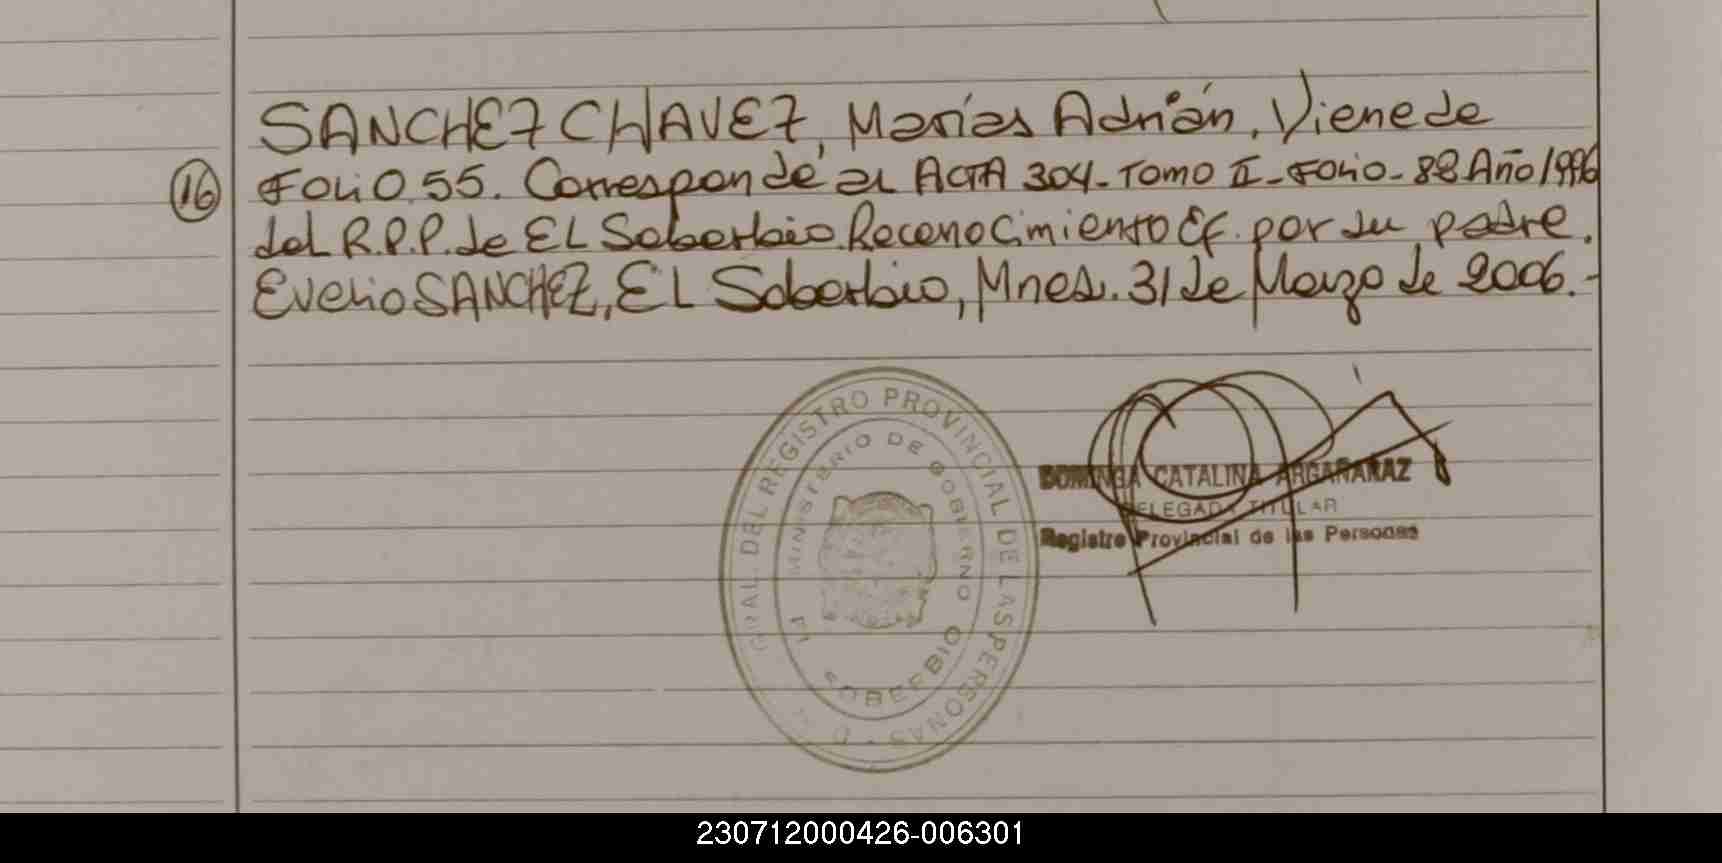 SANCHEZ CHAVEZ, Matías Adrián. Viene de
16 Folio 55. Corresponde al ACTA 304 - Tomo II - Folio - 88 Año/1996
del R.P.P. de EL Soberbio. Reconocimiento Ef. por su padre.
Evelio SANCHEZ, EL Soberbio, Mnes. 31 de Marzo de 2006.-
GRAL. DEL REGISTRO PROVINCIAL DE LAS PERSONAS - D
MINISTERIO DE GOBIERNO
EL SOBERBIO
DOMINGA CATALINA ARGAÑARAZ
DELEGADA TITULAR
Registro Provincial de las Personas
230712000426-006301